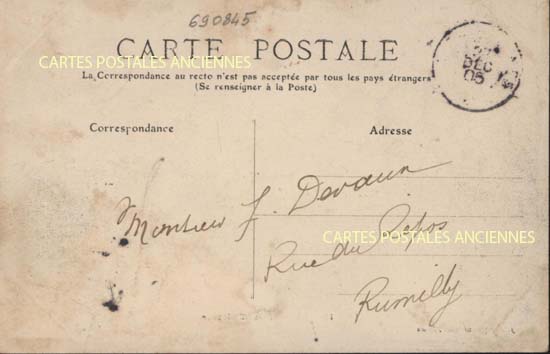 690845
CARTE POSTALE
CARTES POSTALES ANCIENNES
La Correspondance au recto n'est pas acceptée par tous les pays étrangers
(Se renseigner à la Poste)
DEC
05
Correspondance
Adresse
Monsieur F. Devaux
Rue du Repos
CARTES POSTALES ANCIENNES
Rumilly